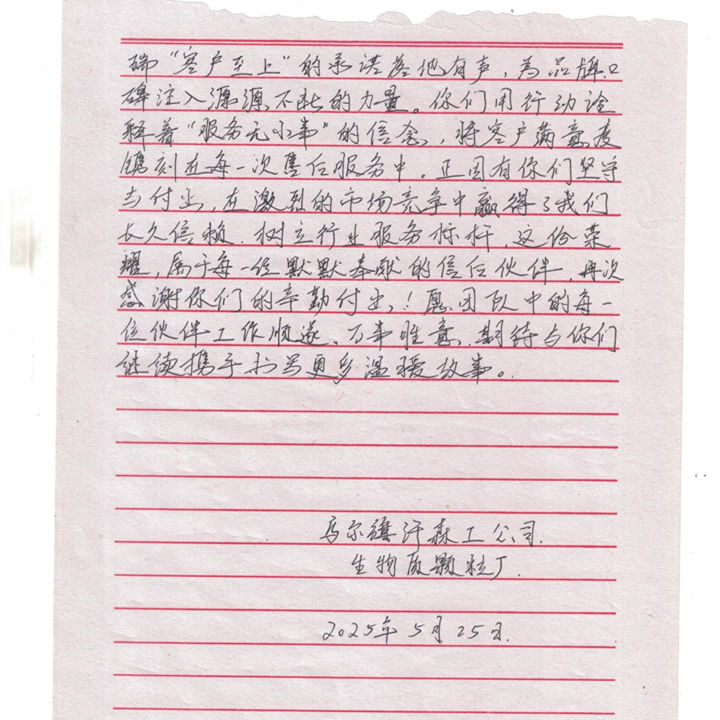 瑞“客户至上”的承诺落地有声，为品牌口
碑注入源源不断的力量。你们用行动诠
释着“服务无小事”的信念，将客户满意度
镌刻在每一次售后服务中。正因有你们坚守
与付出，在激烈的市场竞争中赢得了我们
长久信赖，树立行业服务标杆，这份荣
耀，属于每一位默默奉献的售后伙伴，再次
感谢你们的辛勤付出，！愿团队中的每一
位伙伴工作顺遂、万事胜意，期待与你们
继续携手书写更多温暖故事。
乌尔旗汗森工公司
生物质颗粒厂
2025年5月25日